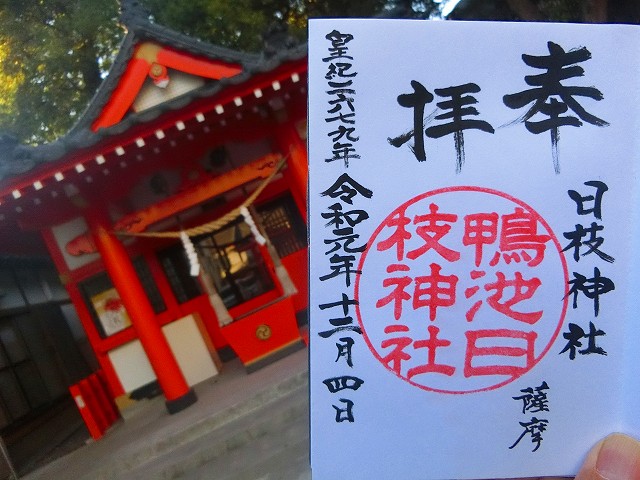 奉拝
日枝神社
薩摩
鴨池日
枝神社
皇紀二六七九年 令和元年十二月四日